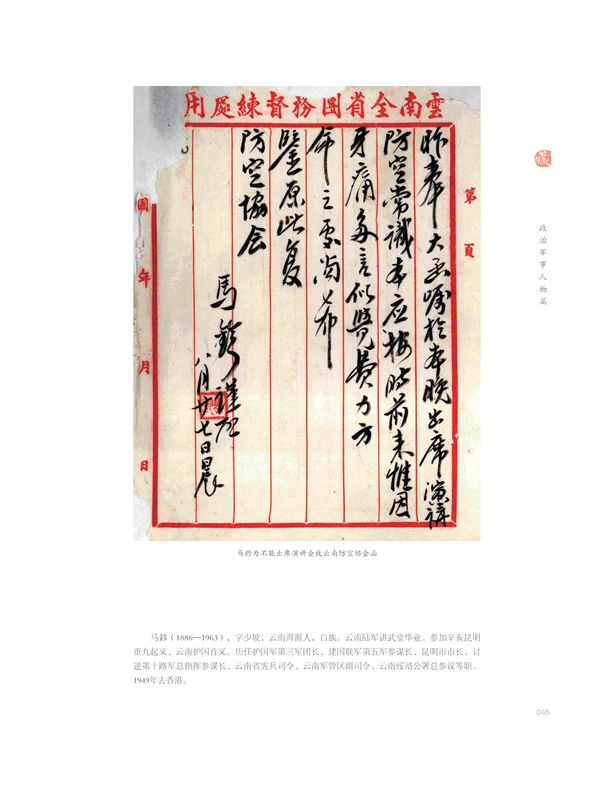 雲南全省團務督練處用
第 頁
昨奉大函嘱於本晚出席演講
防空常識本应按時前来惟因
牙痛多言似覺費力方
命之處尚希
鑒原此复
防空協会
馬鉁謹启
八月廿七日晨
國 年 月 日
政治军事人物篇
马鉁为不能出席演讲会致云南防空协会函
马鉁（1886—1963），字少坡，云南洱源人，白族。云南陆军讲武堂毕业。参加辛亥昆明
重九起义、云南护国首义。历任护国军第三军团长、建国联军第五军参谋长、昆明市市长、讨
逆第十路军总指挥参谋长、云南省宪兵司令、云南军管区副司令、云南绥靖公署总参议等职。
1949年去香港。
045